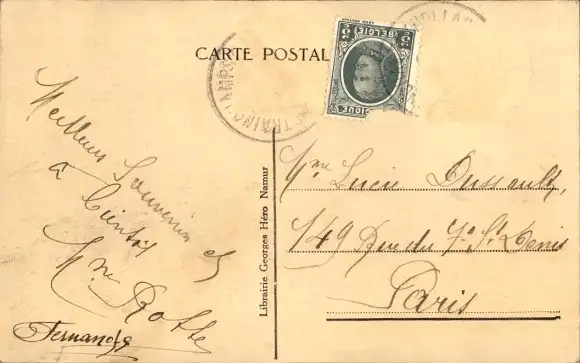 CARTE POSTALE
BELGIE
Meilleur Souvenir et
à bientôt
Fernande
Librairie Georges Héro Namur
Lucie Dussault,
149 Rue du Fg St Denis
Paris